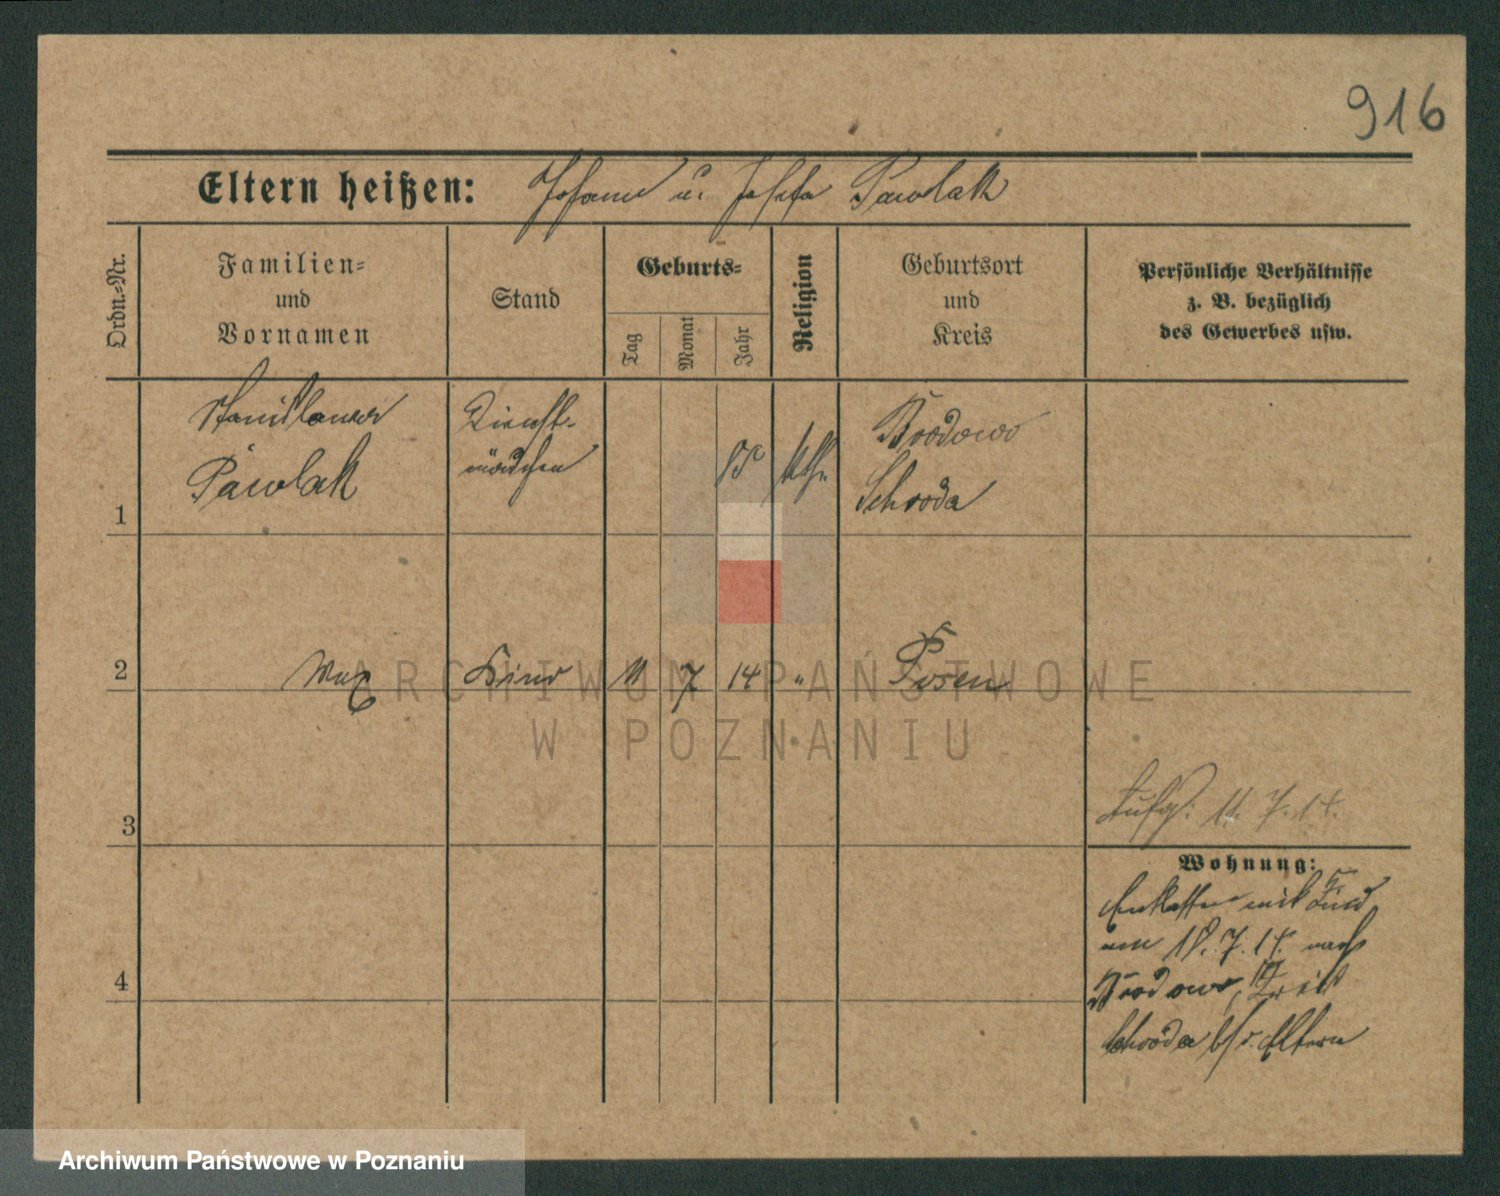 916
Eltern heißen: Johann u. Josefa Pawlak
Ordn.-Nr.
Familien-
und
Vornamen
Stand
Geburts-
Tag
Monat
Jahr
Religion
Geburtsort
und
Kreis
Persönliche Verhältnisse
z. B. bezüglich
des Gewerbes usw.
1
Pawlak
Dienst-
mädchen
kth.
Brodowo
Schroda
2
Max
Kind
11 7 14 "
Posen
3
11. 7. 14.
Wohnung:
Entlassen mit Kind
am 18. 7. 14. nach
Brodowo, Kreis
Schroda b/d. Eltern
4
ARCHIWUM PAŃSTWOWE
W POZNANIU
Archiwum Państwowe w Poznaniu